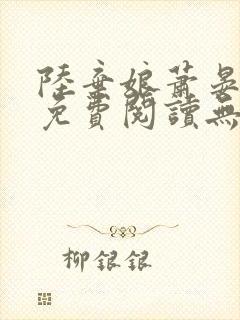 陸棄娘蕭晏
免費閱讀無
柳銀銀